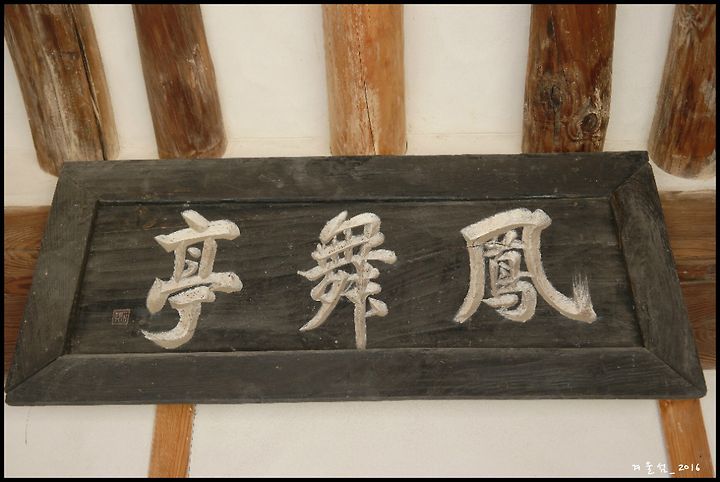 鳳舞亭
겨울섬_2016